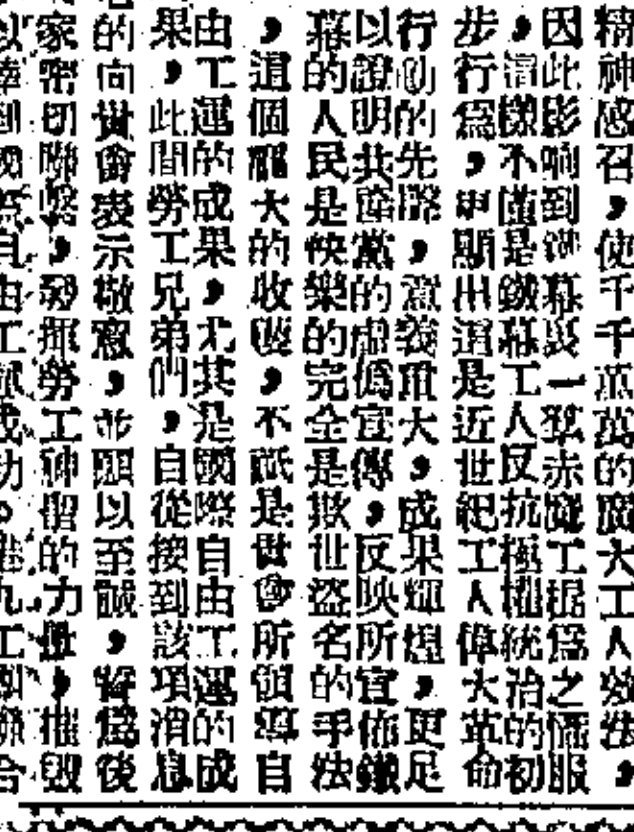 精神感召,使千千萬萬的廣大工人效法,
因此影响到鐵幕裏一羣赤魔工棍爲之懾服
,這樣不僅是鐵幕工人反抗極權統治的初
步行爲,申顯出這是近世紀工人偉大革命
行動的先路,意義重大,成果輝煌,更足
以證明共產黨的虛僞宣傳,反映所宣佈鐵
幕的人民是快樂的完全是欺世盜名的手法
,這個龐大的收穫,不祇是世會所領導自
由工運的成果,尤其是國際自由工運的成
果,此間勞工兄弟們,自從接到該項消息
的向貴會表示敬意,並願以至誠,誓爲後
家密切聯繫,發揮勞工神聖的力量,摧毀
以達到國際自由工成功。港九工團聯合